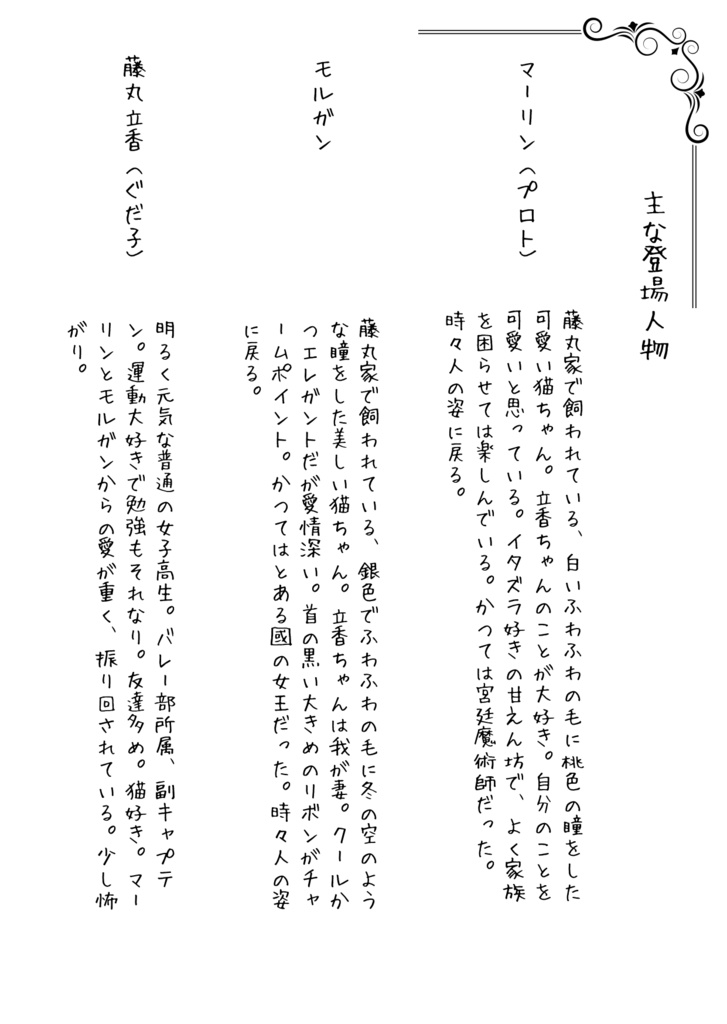 主な登場人物
マーリン（プロト）
藤丸家で飼われている、白いふわふわの毛に桃色の瞳をした
可愛い猫ちゃん。立香ちゃんのことが大好き。自分のことを
可愛いと思っている。イタズラ好きの甘えん坊で、よく家族
を困らせては楽しんでいる。かつては宮廷魔術師だった。
時々人の姿に戻る。
モルガン
藤丸家で飼われている、銀色でふわふわの毛に冬の空のよう
な瞳をした美しい猫ちゃん。立香ちゃんは我が妻。クールか
つエレガントだが愛情深い。首の黒い大きめのリボンがチャ
ームポイント。かつてはとある國の女王だった。時々人の姿
に戻る。
藤丸立香（ぐだ子）
明るく元気な普通の女子高生。バレー部所属、副キャプテ
ン。運動大好きで勉強もそれなり。友達多め。猫好き。マー
リンとモルガンからの愛が重く、振り回されている。少し怖
がり。